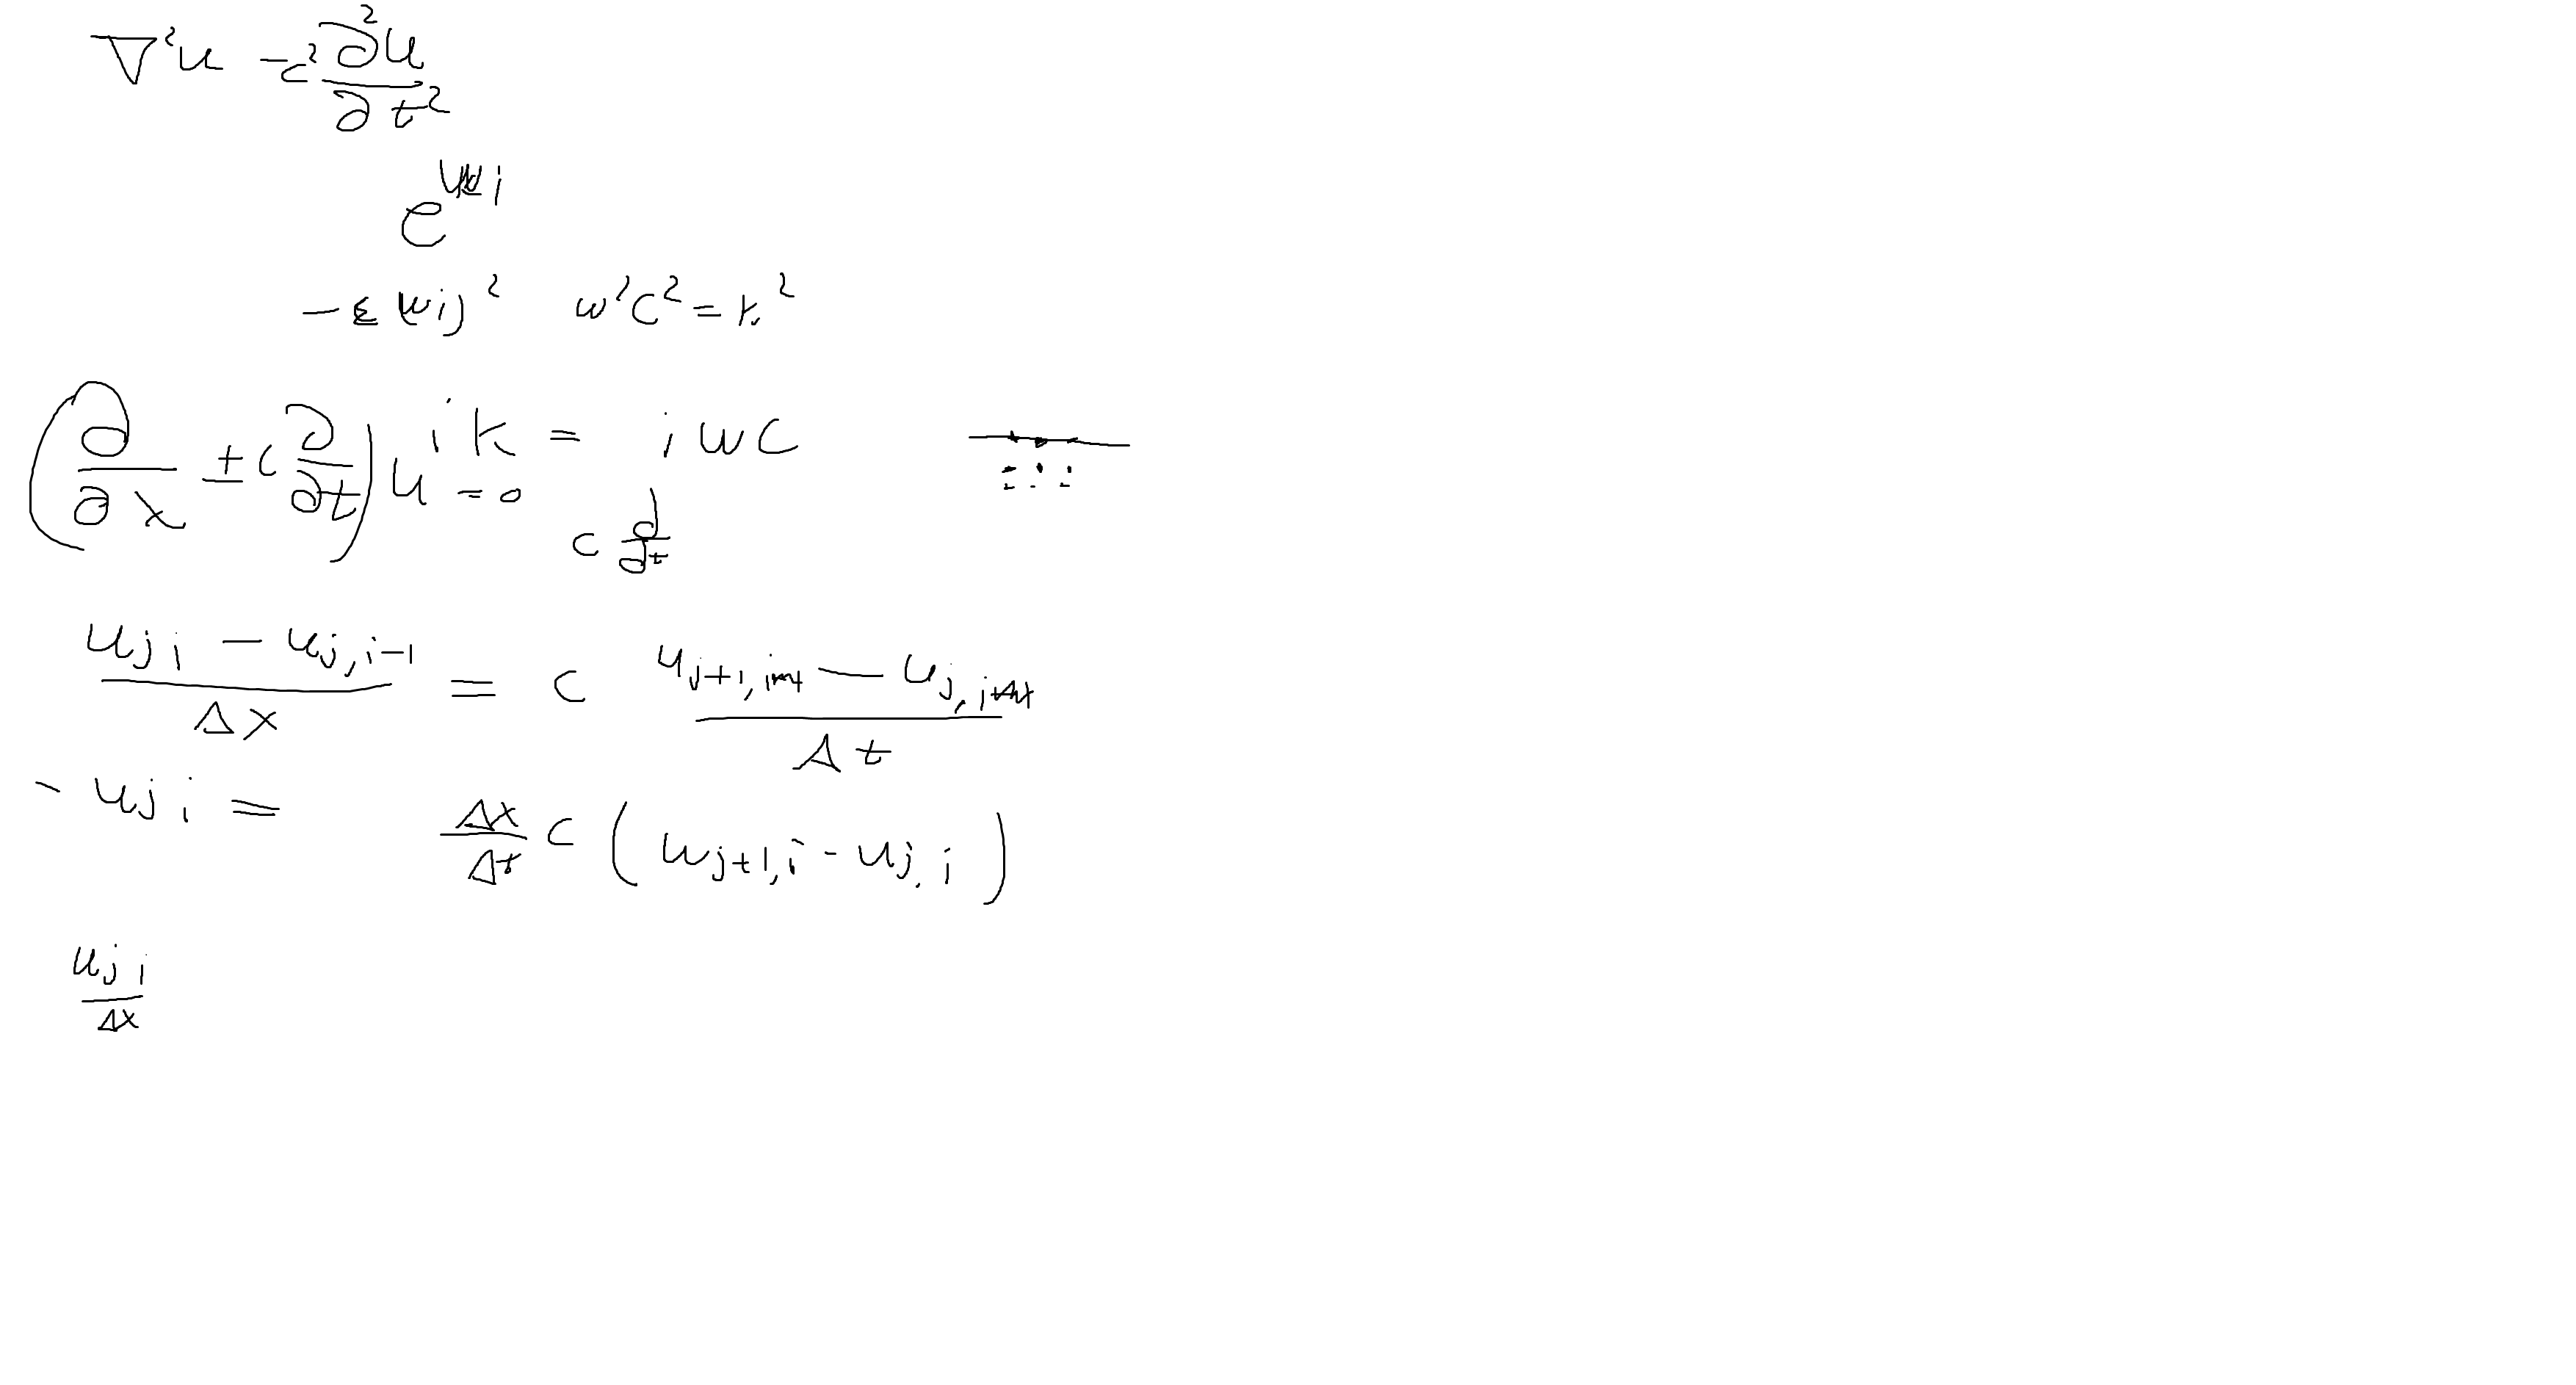 ∇²u -c² ∂²u/∂t²
e i
-c (wi)² w²c² = k²
(∂/∂x ± c ∂/∂t) u = 0 ik = iwc
c ∂/∂t
(u_{ji} - u_{j,i-1})/Δx = c (u_{j+1,i} - u_{j,i})/Δt
- u_{ji} = Δx/Δt c (u_{j+1,i} - u_{j,i})
u_{ji}/Δx